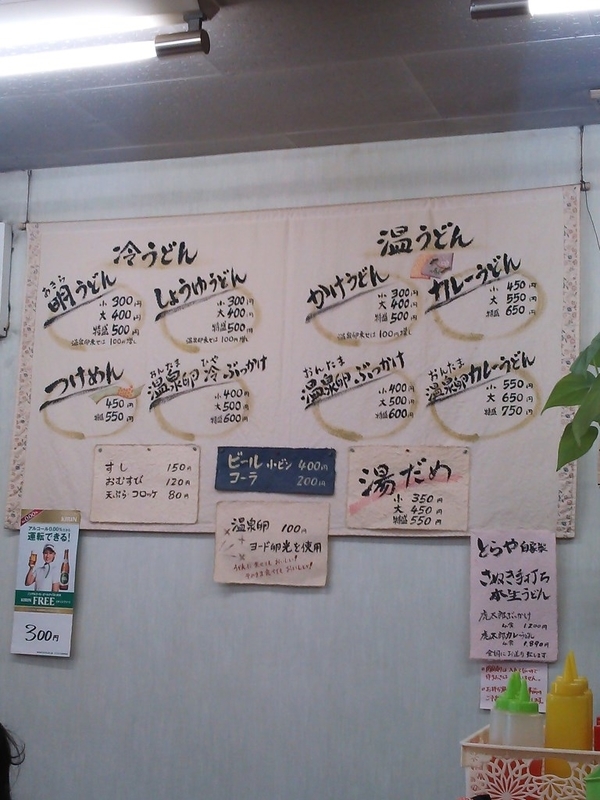 冷うどん
温うどん
うどん
小 300円
大 400円
特盛 500円
温泉卵乗せは 100円増し
しょうゆうどん
小 300円
大 400円
特盛 500円
温泉卵乗せは 100円増し
かけうどん
小 300円
大 400円
特盛 500円
温泉卵乗せは 100円増し
カレーうどん
小 450円
大 550円
特盛 650円
つけめん
450円
特盛 550円
おんたま ひや
温泉卵 冷ぶっかけ
小 400円
大 500円
特盛 600円
おんたま
温泉卵 ぶっかけ
小 400円
大 500円
特盛 600円
おんたま
温泉卵カレーうどん
小 550円
大 650円
特盛 750円
すし 150円
おむすび 120円
天ぷら・コロッケ 80円
ビール 小ビン 400円
コーラ 200円
湯だめ
小 350円
大 450円
特盛 550円
温泉卵 100円
ヨード卵光を使用
アルコール0.00%だから
運転できる!
KIRIN FREE
300円
とらや 自家製
さぬき手打ち
生うどん
虎太郎ぶっかけ
虎太郎カレーうどん
全国にお送り致します